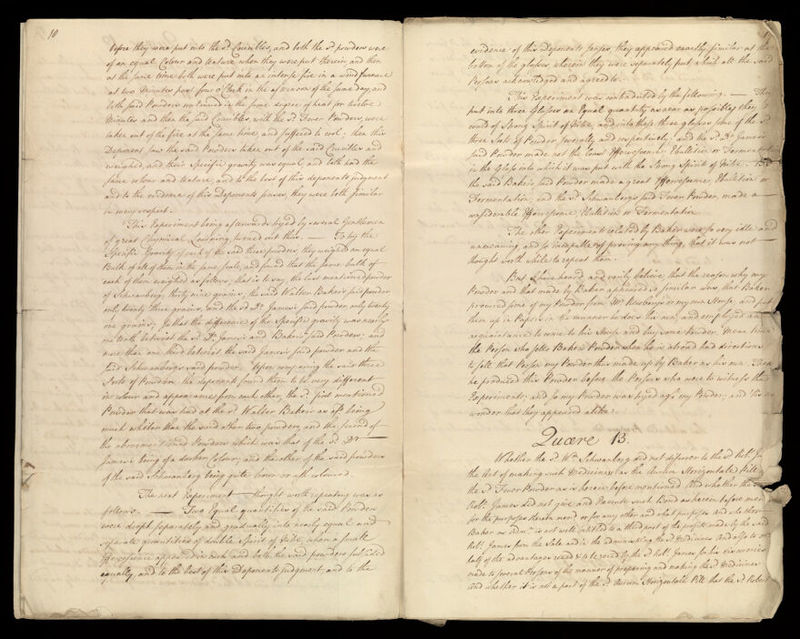 10
before they were put into the sd. Crucibles, and both the sd. powders were
of an equal Colour and texture when they were put therein, and then
at the same time both were put into an intense fire in a wind furnace
at two Minutes past four o'Clock in the afternoon of the same day, and
both said Powders continued in the same degree of heat for twelve
Minutes and then the said Crucibles, with the sd. Fever Powders, were
taken out of the fire at the same time, and suffered to cool; then this
Deponent saw the said Powders taken out of the said Crucibles and
weighed, and their Specific gravity was equal, and both had the
same colour and texture, and to the best of this deponents judgment
and to the evidence of this Deponents senses, they were both similar
in every respect.
This Experiment being afterwards tryed by several Gentlemen
of great Chymical Learning turned out thus. — To try the
Specific Gravity of each of the said three powders, they weighed an equal
Bulk of all of them in the same scale, and found that the same bulk of
each of them weighed as follows, that is to say the last mentioned powder
of Schwanberg, thirty nine grains, the said Walter Bakers said powder
only twenty three grains, and the sd. Dr. James's said powder only twenty
one grains; so that the difference of the Specific gravity was nearly
one tenth betwixt the sd. Dr. James's and Bakers said Powders; and
more than one third betwixt the said James's said powder and the
said Schwanbergs said powder. Upon comparing the said three
Sorts of Powders the deponents found them to be very different
in colour and appearances from each other, the sd. first mentioned
Powder that was had at the sd. Walter Bakers as afsd. being
much whiter than the said other two powders, and the second of
the abovementioned Powders which was that of the sd. Dr.
James's being of a darker Colour, and the other of the said powders
of the said Schwanberg being quite brown or ash coloured
The next Experiment thought worth repeating was as
follows. — Two Equal quantities of the said Powders
were dropt separately and gradually into nearly equal and
separate quantities of double Spirit of Nitre, when a small
Effervescence appeared in both and both the said powders
equally, and to the best of this Deponents judgment, and to the
evidence of this Deponents senses, they appeared exactly similar at the
bottom of the glasses wherein they were separately put, which all the said
Persons acknowledged and agreed to.
This Experiment was contradicted by the following. — They
put into three Glasses an Equal quantity as near as possibly they
could of Strong Spirit of Nitre, and into these three glasses some of the sd.
three Sorts of Powder severally and respectively, and the sd. Dr. James's
said Powder made not the least Effervescence Ebullition or Fermentation
in the Glass into which it was put with the Strong Spirits of Nitre. But
the said Bakers said Powder made a great Effervescence, Ebullition or
Fermentation, and the sd. Schwanbergs said Fever Powder, made a
considerable Effervescence Ebullition or Fermentation.
The other Experiments related by Baker were so very idle and
unmeaning, and so incapable of proving any thing, that it was not
thought worth while to repeat them.
But I have heard, and verily believe, that the reason why my
Powder and that made by Baker appeared so similar was that Baker
procured some of my Powder from Mr. Newberys or my own House, and put
them up in Papers in the manner he does his own, and employed an
acquaintance to come to his House and buy some Powder. Mean time
the Person who sells Bakers Powder when he is abroad had directions
to sell that Person my Powder thus made up by Baker as his own. Then
he produced this Powder before the Persons who were to witness the
Experiments; and so my Powder was tryed agt. my Powder, and 'tis no
wonder that they appeared alike.
Quære 13.
Whether the sd. Wm. Schwanberg did not discover to the sd. Robt. James
the Art of making such Medicines as the Aurum Horizontale Pills
the sd. Fever Powder as is herein before mentioned And whether the sd.
Robt. James did not give and Execute such Bond as herein before mentd.
for the purposes therein mend. or for any other and what purposes and whether
Baker as admr. is not well intitled to a third part of the profits made by the said
Robt. James from the Sale and in the administring the sd. Medicines And also to one
half of the advantages recd. & to be recd. by the sd. Robt. James for his discoveries
made to several Persons of the manner of preparing and making the sd. Medicines
and whether it is not a part of the sd. Aurum Horizontale Pill that the sd. Robert